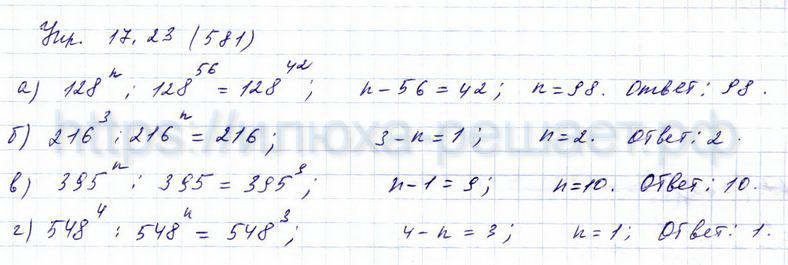 Упр. 17.23 (581)
а) 128ⁿ : 128⁵⁶ = 128⁴² ; n - 56 = 42 ; n = 98. Ответ: 98.
б) 216³ : 216ⁿ = 216 ; 3 - n = 1 ; n = 2. Ответ: 2.
в) 395ⁿ : 395 = 395⁹ ; n - 1 = 9 ; n = 10. Ответ: 10.
г) 548⁴ : 548ⁿ = 548³ ; 4 - n = 3 ; n = 1 ; Ответ: 1.
https://илюха-решает.рф